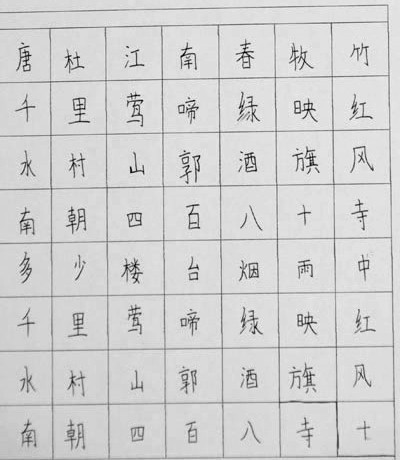 唐杜江南春牧竹
千里莺啼绿映红
水村山郭酒旗风
南朝四百八十寺
多少楼台烟雨中
千里莺啼绿映红
水村山郭酒旗风
南朝四百八寺十